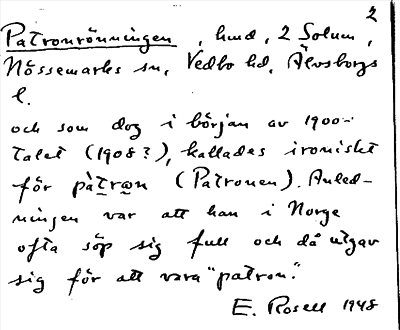 2
Patronrönningen, hmd, 2 Solum,
Nössemarks sn, Vedbo hd, Älvsborgs
l.
och som dog i början av 1900-
talet (1908?), kallades ironiskt
för pàtron (Patronen). Anled-
ningen var att han i Norge
ofta söp sig full och då utgav
sig för att vara "patron".
E. Rosell 1948